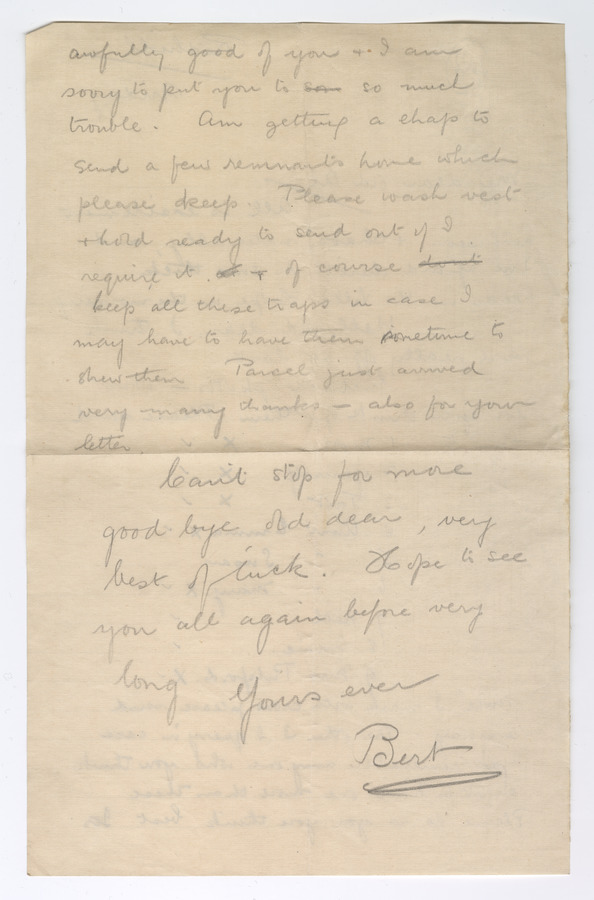 awfully good of you + I am
sorry to put you to so much
trouble. Am getting a chap to
send a few remnants home which
please keep. Please wash vest
+ hold ready to send out if I
require it. + of course dont
keep all these traps in case I
may have to have them sometime to
shew them Parcel just arrived
very many thanks – also for your
letter.
Can't stop for more
good bye old dear, very
best of luck. Hope to see
you all again before very
long Yours ever
Bert